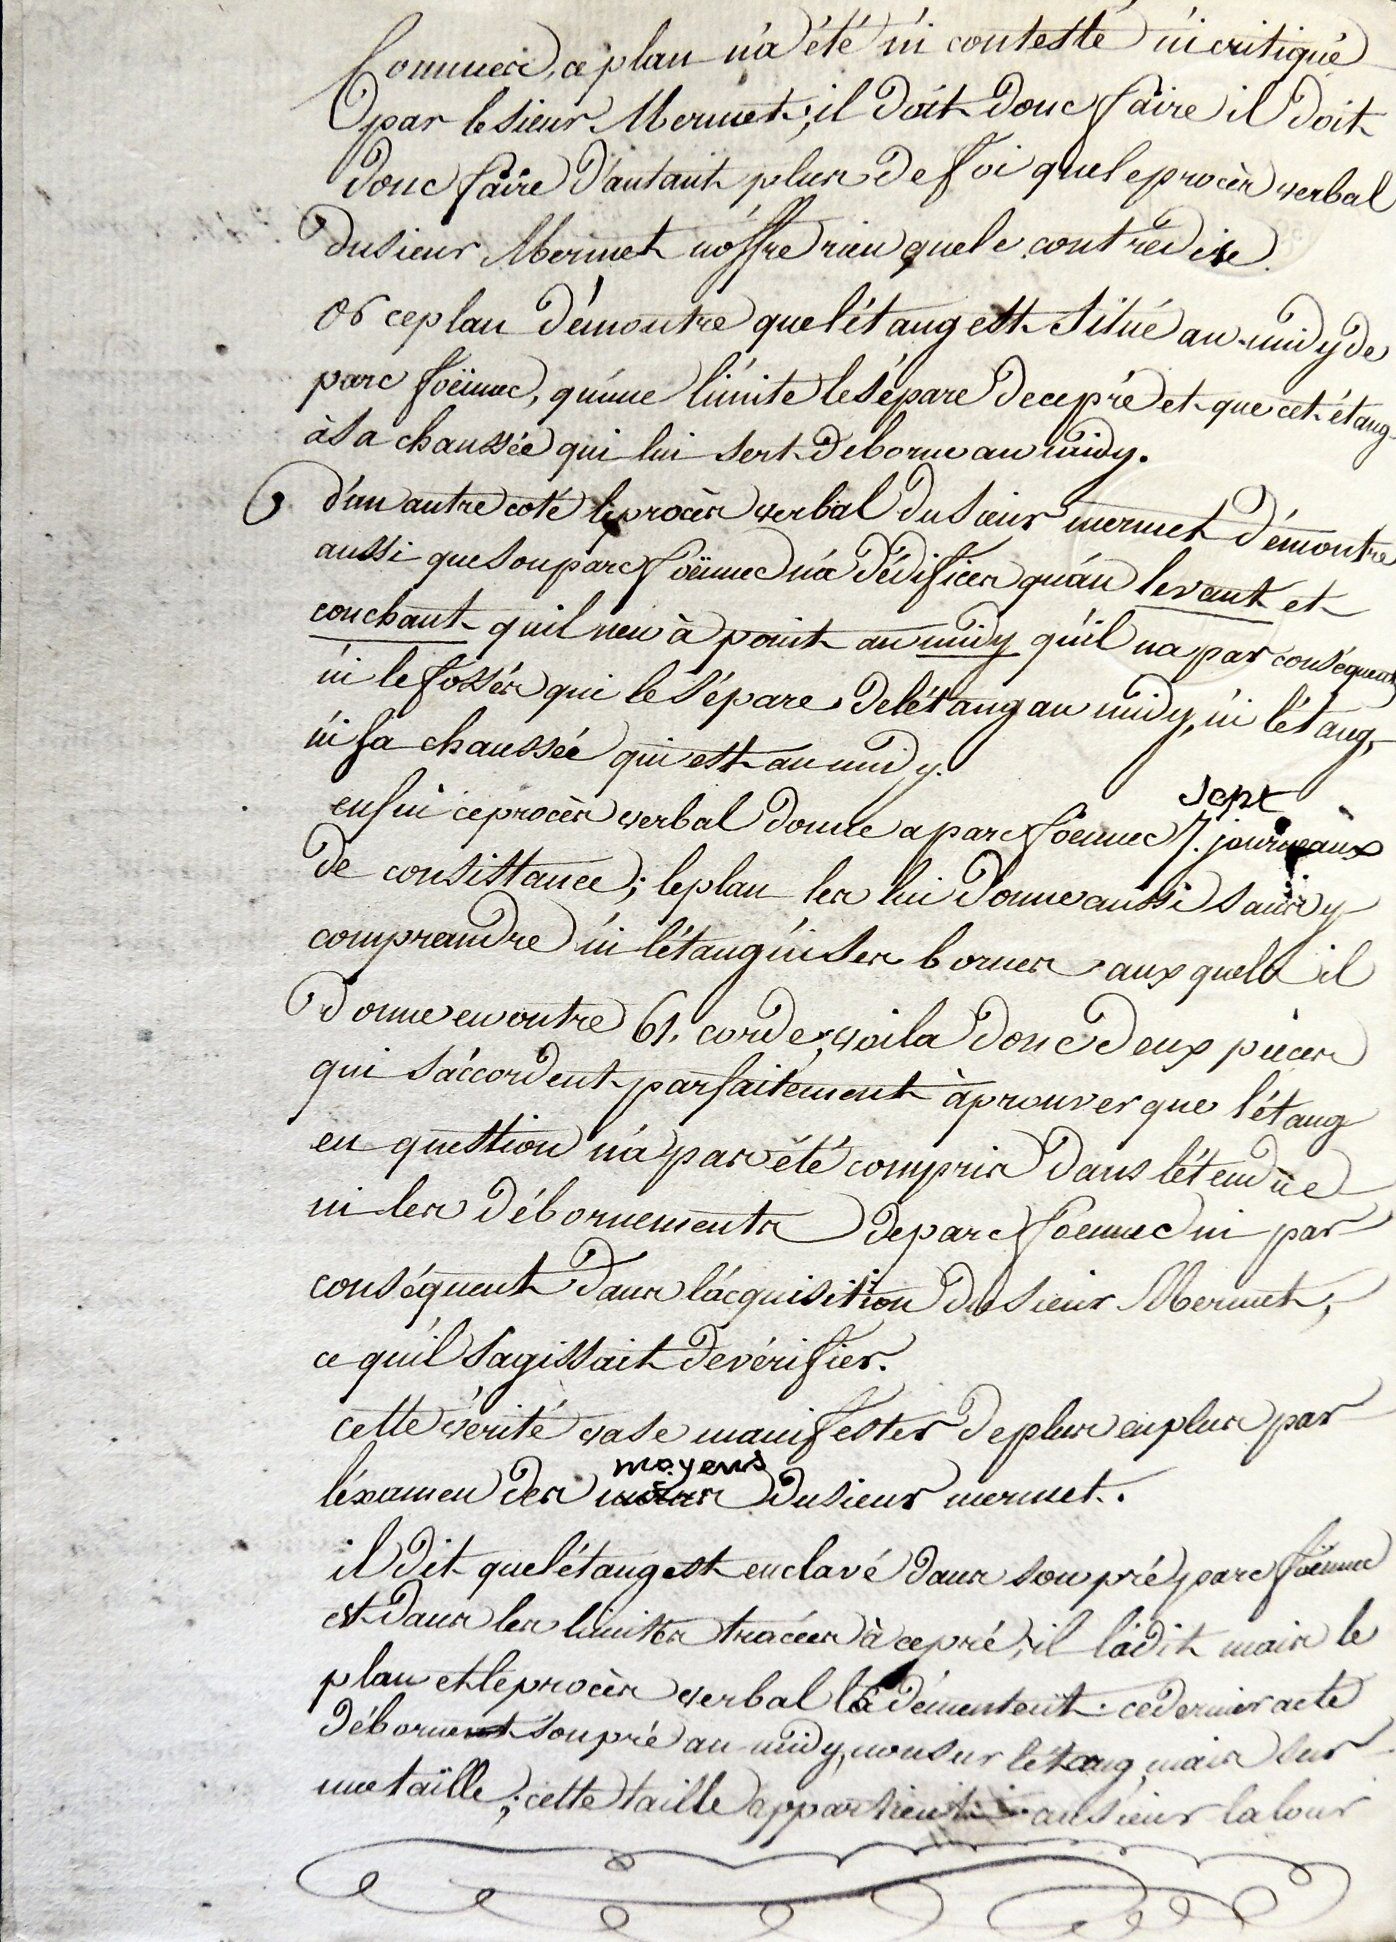 Commeci, ce plan n'a été ni contesté ni critiqué
par le sieur Mermet; il doit donc faire il doit
donc faire d'autant plus de foi que le procès verbal
du sieur Mermet n'offre rien que le contredise.
or ce plan démontre que l'étang est situé au midy de
parc foënnec, qu'une limite le sépare de ce pré et que cet étang
à sa chaussée qui lui sert de borne au midy.
d'un autre coté le procès verbal du sieur mermet démontre
aussi que son parc foënnec n'a d'édifices qu'au levant et
couchant qu'il n'en à point au midy qu'il n'a par conséquent
ni le fossés qui le sépare de l'étang au midy, ni l'étang,
ni sa chaussée qui est au midy.
sept
enfin ce procès verbal donne a parc foennec 7. journeaux
de consistance; le plan les lui donne aussi sans y
comprendre ni l'étang ni ses bornes auxquels il
donne en outre 61. corde; voila donc deux pièces
qui s'accordent parfaitement à prouver que l'étang
en question n'a pas été compris dans l'étendüe
ni les débornements de parc foennec ni par
conséquent dans l'acquisition du sieur Mermet,
ce qu'il s'agissait de vérifier.
cette vérité va se manifester de plus en plus par
moyens
l'éxamen des du sieur mermet.
il dit que l'étang est enclavé dans son pré parc foënnec
et dans les limites tracées à ce pré; il l'a dit mais le
plan et le procès verbal le démentent. ce dernier acte
débornent son pré au midy, non sur l'étang, mais sur
une taïlle; cette taille appartient au sieur lalour